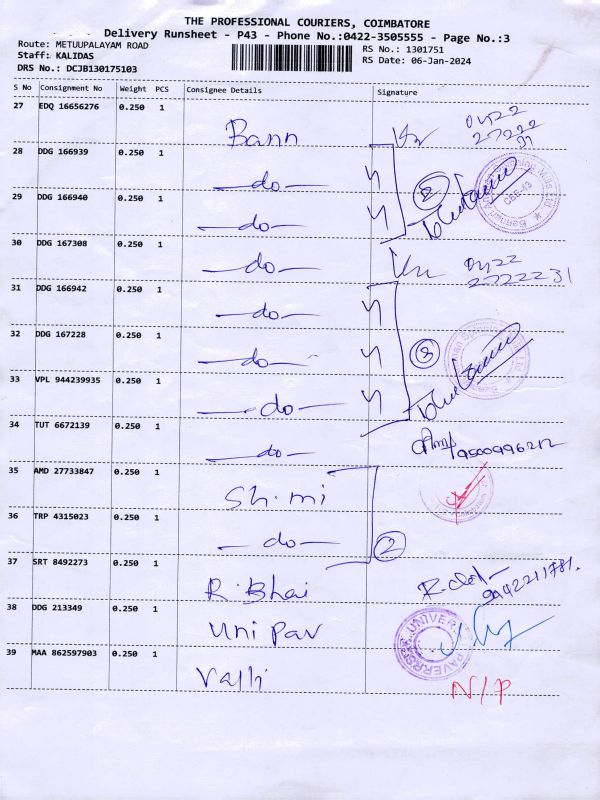 THE PROFESSIONAL COURIERS, COIMBATORE
Delivery Runsheet - P43 - Phone No.:0422-3505555 - Page No.:3
Route: METUUPALAYAM ROAD
RS No.: 1301751
Staff: KALIDAS
RS Date: 06-Jan-2024
DRS No.: DCJB130175103
S No Consignment No Weight PCS Consignee Details Signature
27 EDQ 16656276 0.250 1 Bann
28 DDG 166939 0.250 1 -do- 2
29 DDG 166940 0.250 1 -do-
30 DDG 167308 0.250 1 -do-
31 DDG 166942 0.250 1 -do-
32 DDG 167228 0.250 1 -do-
33 VPL 944239935 0.250 1 -do-
34 TUT 6672139 0.250 1 -do- 9500996212
35 AMD 27733847 0.250 1 Sh.mi
36 TRP 4315023 0.250 1 -do- 2
37 SRT 8492273 0.250 1 R.Bhai 9942211781.
38 DDG 213349 0.250 1 Uni Pav
39 MAA 862597903 0.250 1 Valli N/P